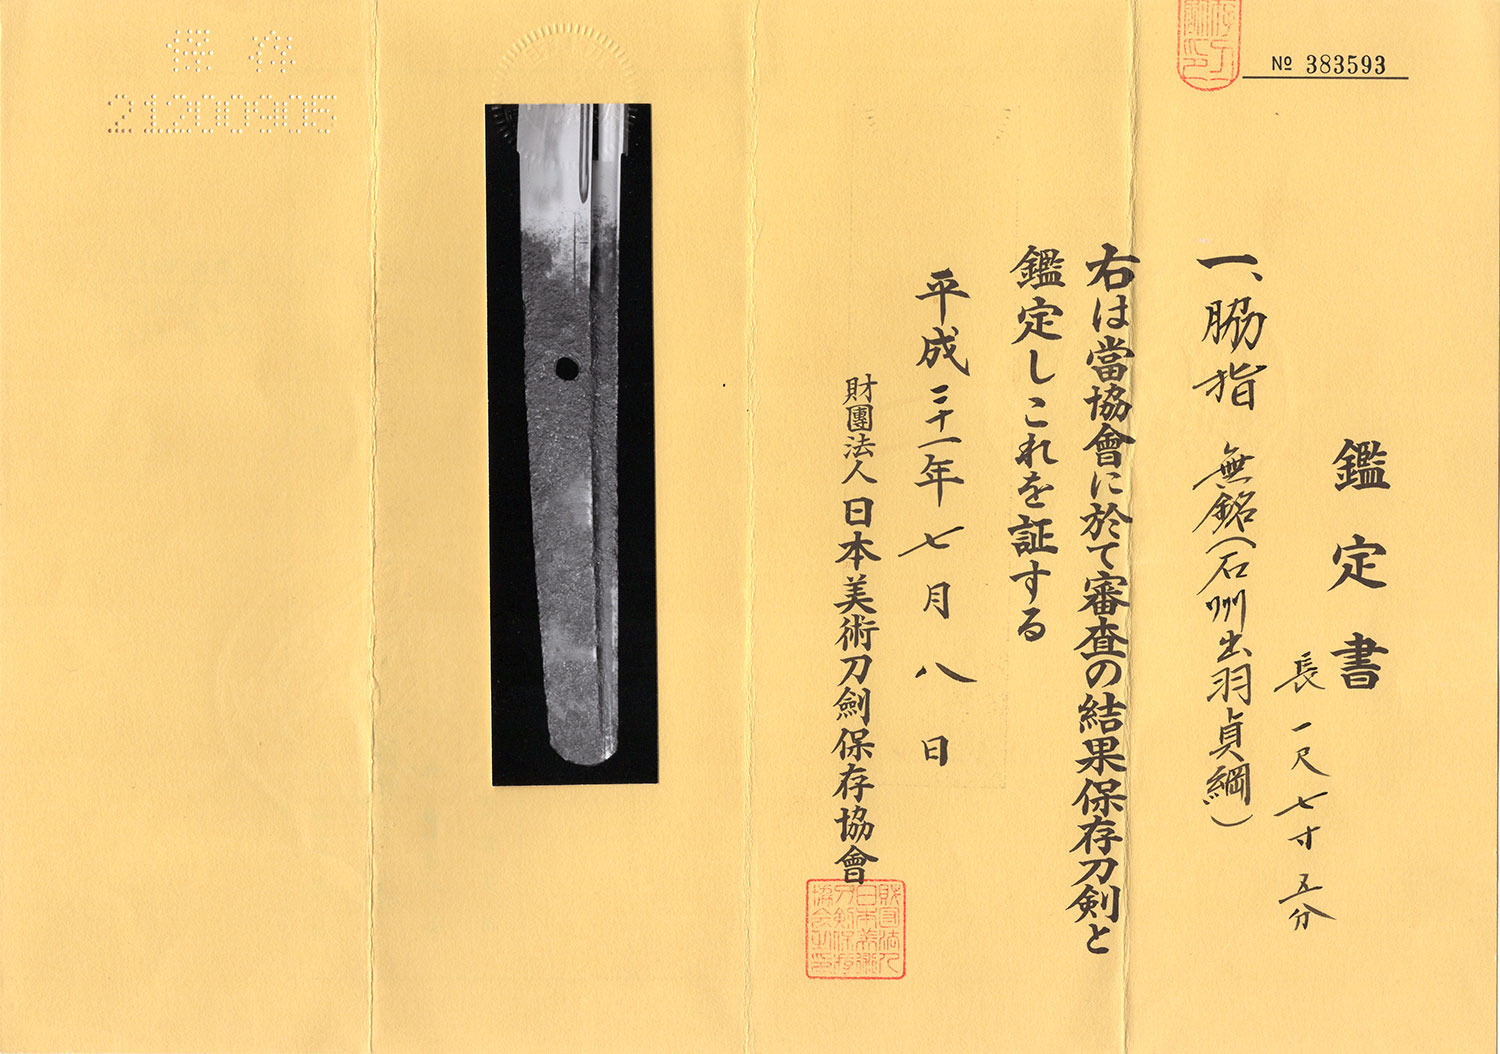 № 383593
鑑定書
長一尺七寸五分
一、脇指 無銘(石州出羽貞綱)
右は當協會に於て審査の結果保存刀剣と
鑑定しこれを証する
平成二十一年七月八日
財團法人日本美術刀劍保存協會
財団法人
日本美術
刀剣保存
協会之印
保存
21200905